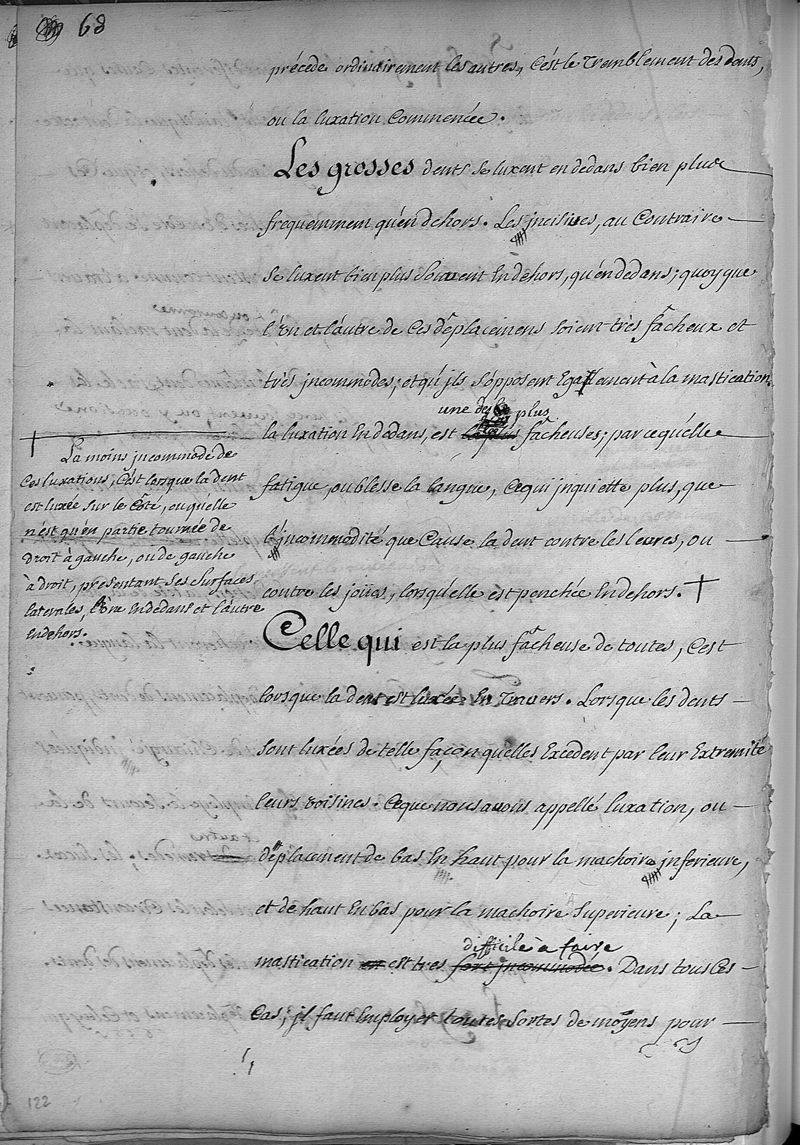 68
précede ordinairement les autres, C'est le Tremblement des dens,
ou la luxation Commencée.
Les grosses dents se luxent en dedans bien plus
frequemment qu'en dehors. Les jncisives, au Contraire
se luxent bien plus Souvent En dehors, qu'en dedans; quoy que
l'un et l'autre de Ces déplacemens soient très fâcheux et
très jncommodes; et qu'jls s'opposent Egalement à la mastication,
une des plus
la luxation En dedans, est la plus fâcheuses; parce qu'elle
fatigue, ou blesse la langue, Ce qui jnquiette plus, que
l'jncommodité que Cause la dent contre les levres, ou
contre les joües, lorsqu'elle est penchée En dehors. †
†
La moins jncommode de
Ces luxations, C'est lorsque la dent
est luxée sur le Côté, ou qu'elle
n'est qu'en partie tournée de
Droit à gauche, ou de gauche
à droit, presentant ses surfaces
laterales, l'une En dedans et l'autre
En dehors.
Celle qui est la plus fâcheuse de toutes, C'est
lorsque la dent est luxée En Travers. Lorsque les dents
sont luxées de telle façon qu'elles Excedent par leur Extremité
leurs voisines. Ce que nous avons appellé luxation, ou
déplacement de bas En haut pour la machoire jnferieure,
et de haut En bas pour la machoire Superieure; La
difficile à faire
mastication en est tres fort jncommodée. Dans tous Ces
Cas; jl faut Employer toutes sortes de moyens pour
122